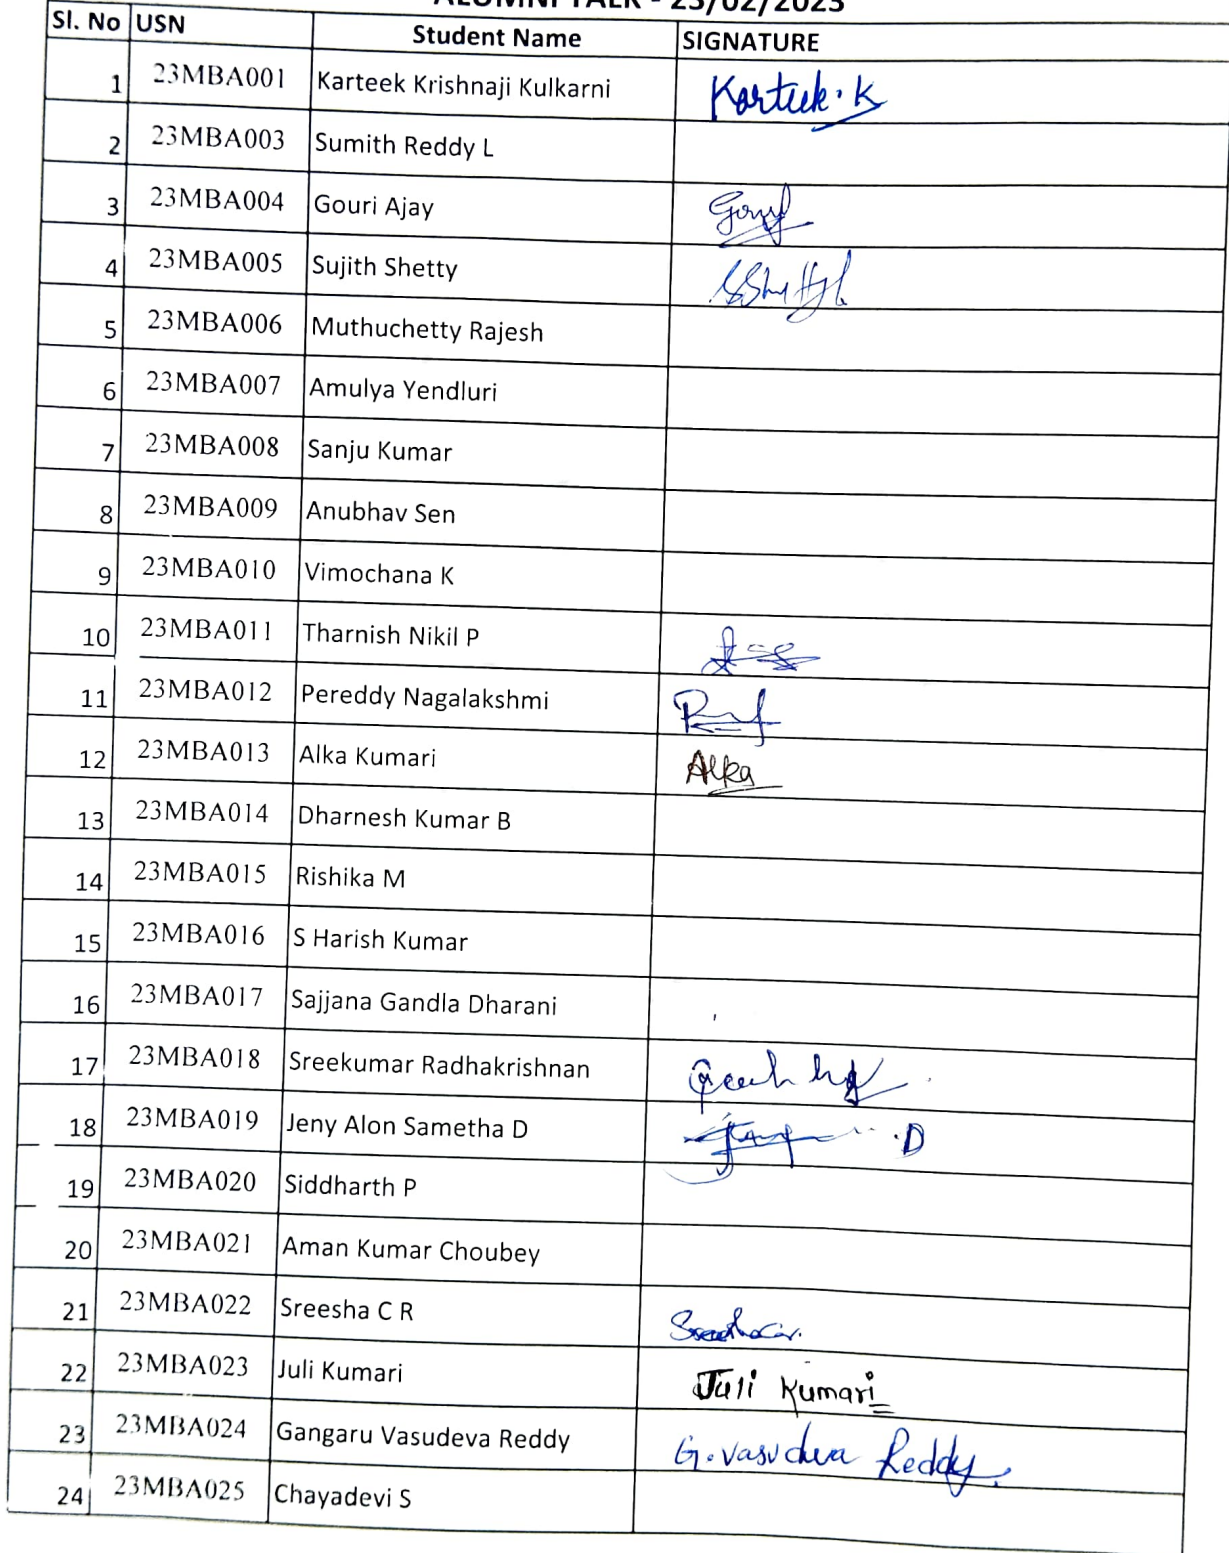 ALUMNI TALK - 23/02/2023
Sl. No USN Student Name SIGNATURE
1 23MBA001 Karteek Krishnaji Kulkarni Karteek. K
2 23MBA003 Sumith Reddy L
3 23MBA004 Gouri Ajay
4 23MBA005 Sujith Shetty
5 23MBA006 Muthuchetty Rajesh
6 23MBA007 Amulya Yendluri
7 23MBA008 Sanju Kumar
8 23MBA009 Anubhav Sen
9 23MBA010 Vimochana K
10 23MBA011 Tharnish Nikil P
11 23MBA012 Pereddy Nagalakshmi
12 23MBA013 Alka Kumari Alka
13 23MBA014 Dharnesh Kumar B
14 23MBA015 Rishika M
15 23MBA016 S Harish Kumar
16 23MBA017 Sajjana Gandla Dharani
17 23MBA018 Sreekumar Radhakrishnan
18 23MBA019 Jeny Alon Sametha D
19 23MBA020 Siddharth P
20 23MBA021 Aman Kumar Choubey
21 23MBA022 Sreesha C R
22 23MBA023 Juli Kumari Juli Kumari
23 23MBA024 Gangaru Vasudeva Reddy G. Vasudeva Reddy
24 23MBA025 Chayadevi S